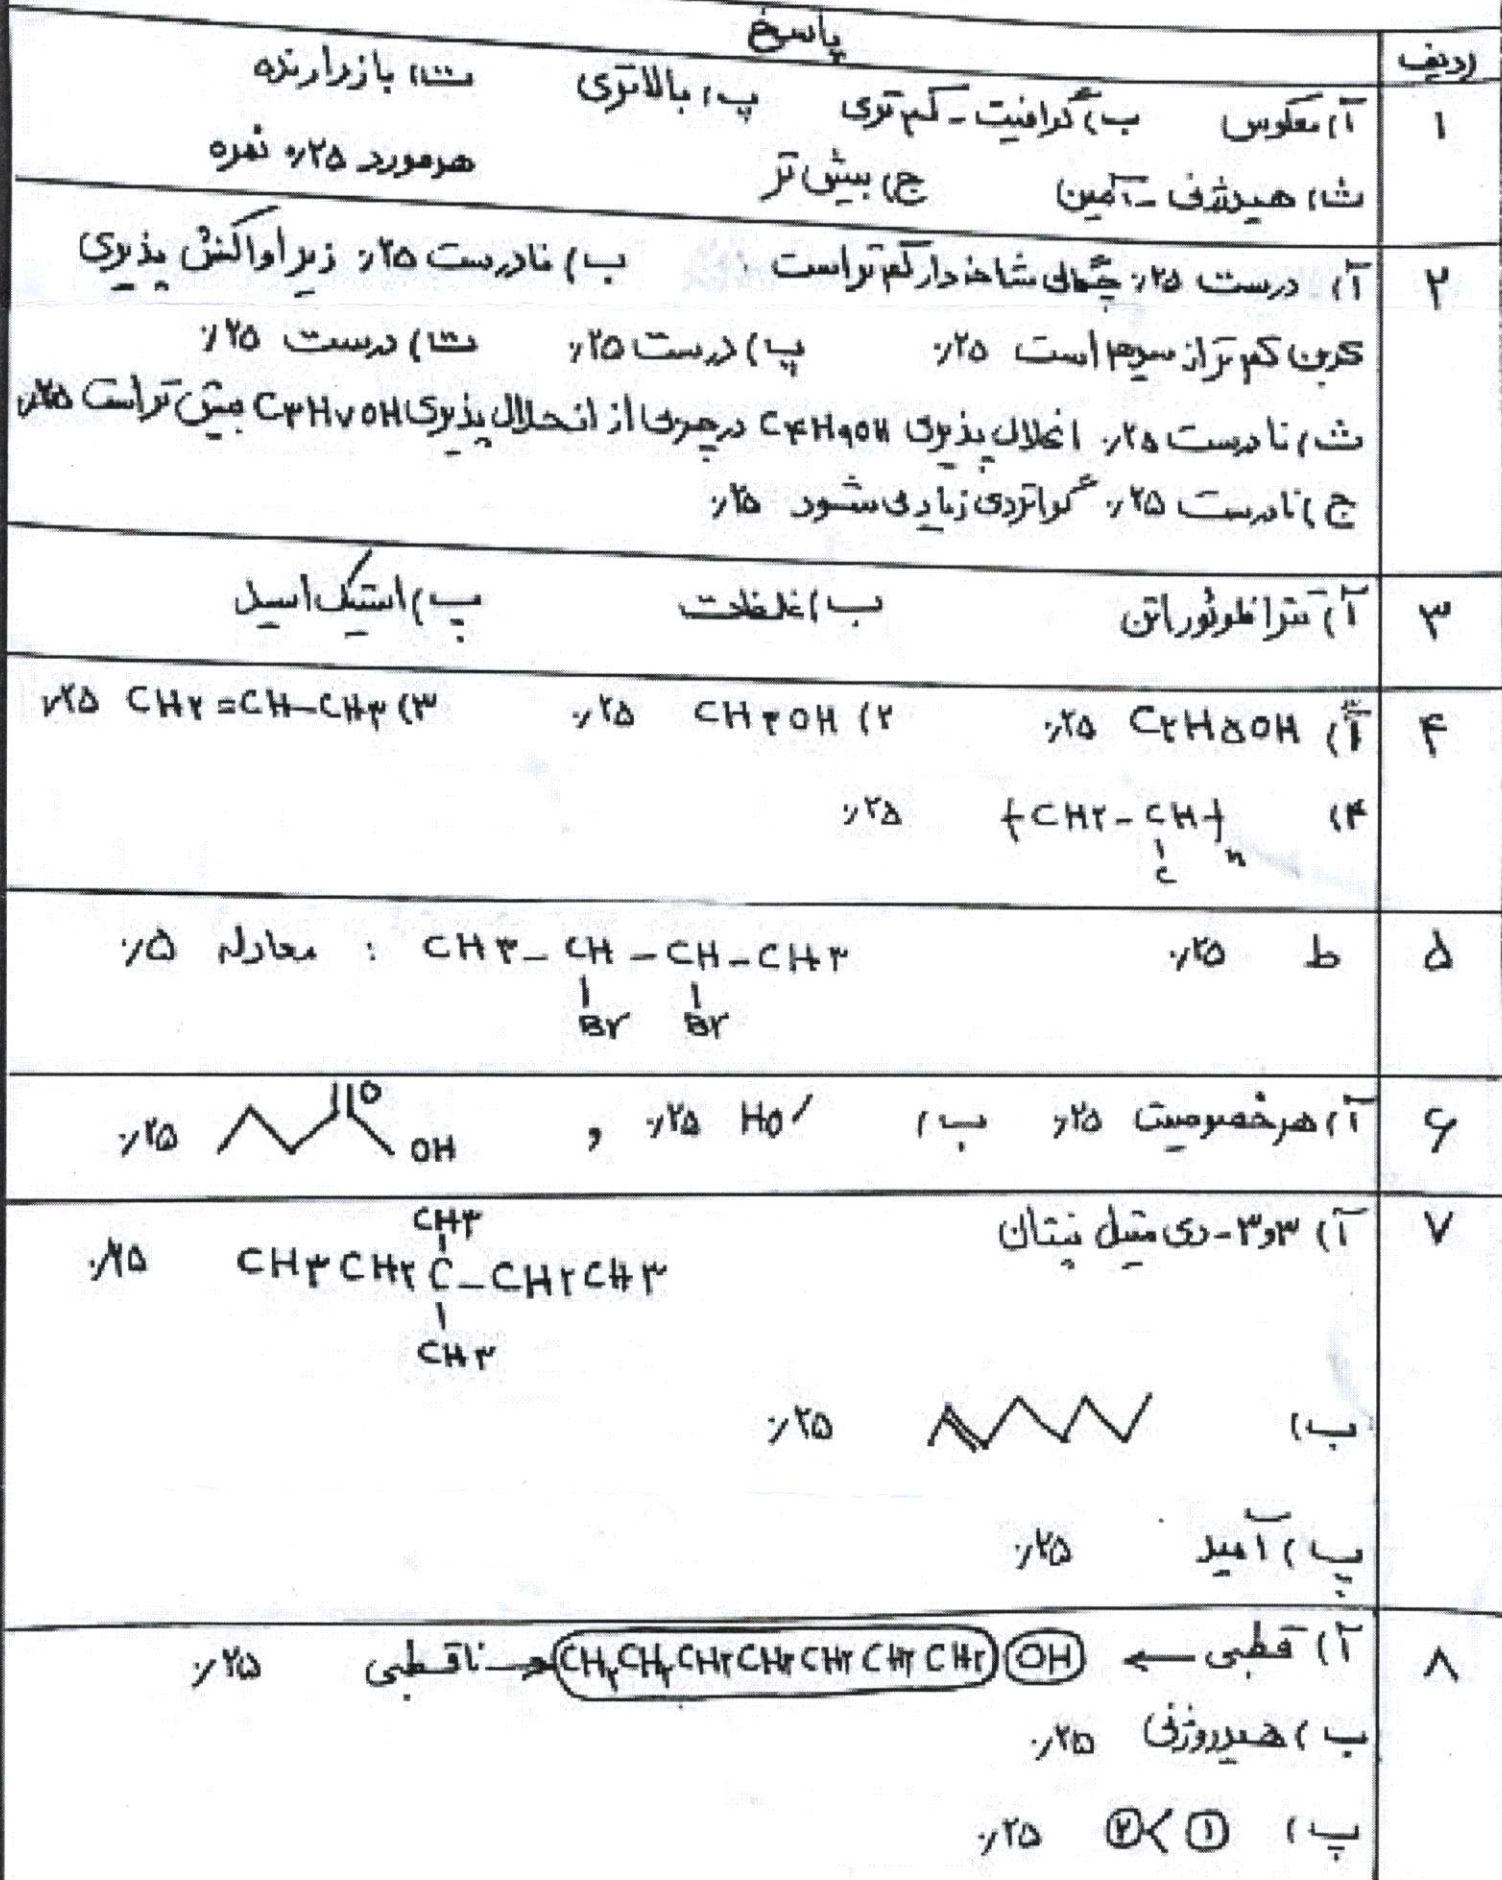 ردیف پاسخ
۱ آ) معکوس ب) گرافیت - کم تری پ) بالاتری ت) بازدارنده
ث) هیدروژنی - آمین ج) بیش تر هر مورد ۰/۲۵ نمره
۲ آ) درست ۰/۲۵ چگالی شاخه دار کم تر است ب) نادرست ۰/۲۵ زیرا واکنش پذیری
کربن کم تر از سدیم است ۰/۲۵ پ) درست ۰/۲۵ ت) درست ۰/۲۵
ث) نادرست ۰/۲۵ انحلال پذیری C۴H۹OH در چربی از انحلال پذیری C۳H۷OH بیش تر است ۰/۲۵
ج) نادرست ۰/۲۵ گرانروی زیاد می شود ۰/۲۵
۳ آ) تترافلوئورواتن ب) غلظت پ) استیک اسید
۴ آ) C۲H۵OH ۰/۲۵ ۲) CH۳OH ۰/۲۵ ۳) CH۲=CH-CH۳ ۰/۲۵
۴) [CH۲-CH]n ۰/۲۵
۵ ط ۰/۲۵ CH۳-CH-CH-CH۳ : معادله ۰/۵
Br Br
۶ آ) هر خصوصیت ۰/۲۵ ب) HO ۰/۲۵ , O OH ۰/۲۵
۷ آ) ۳و۳-دی متیل پنتان CH۳
CH۳CH۲C-CH۲CH۳ ۰/۲۵
CH۳
ب) ۰/۲۵
پ) آمید ۰/۲۵
۸ آ) قطبی ← OH CH۲CH۲CH۲CH۲CH۲CH۲CH۲ → ناقطبی ۰/۲۵
ب) هیدروژنی ۰/۲۵
پ) ① > ② ۰/۲۵